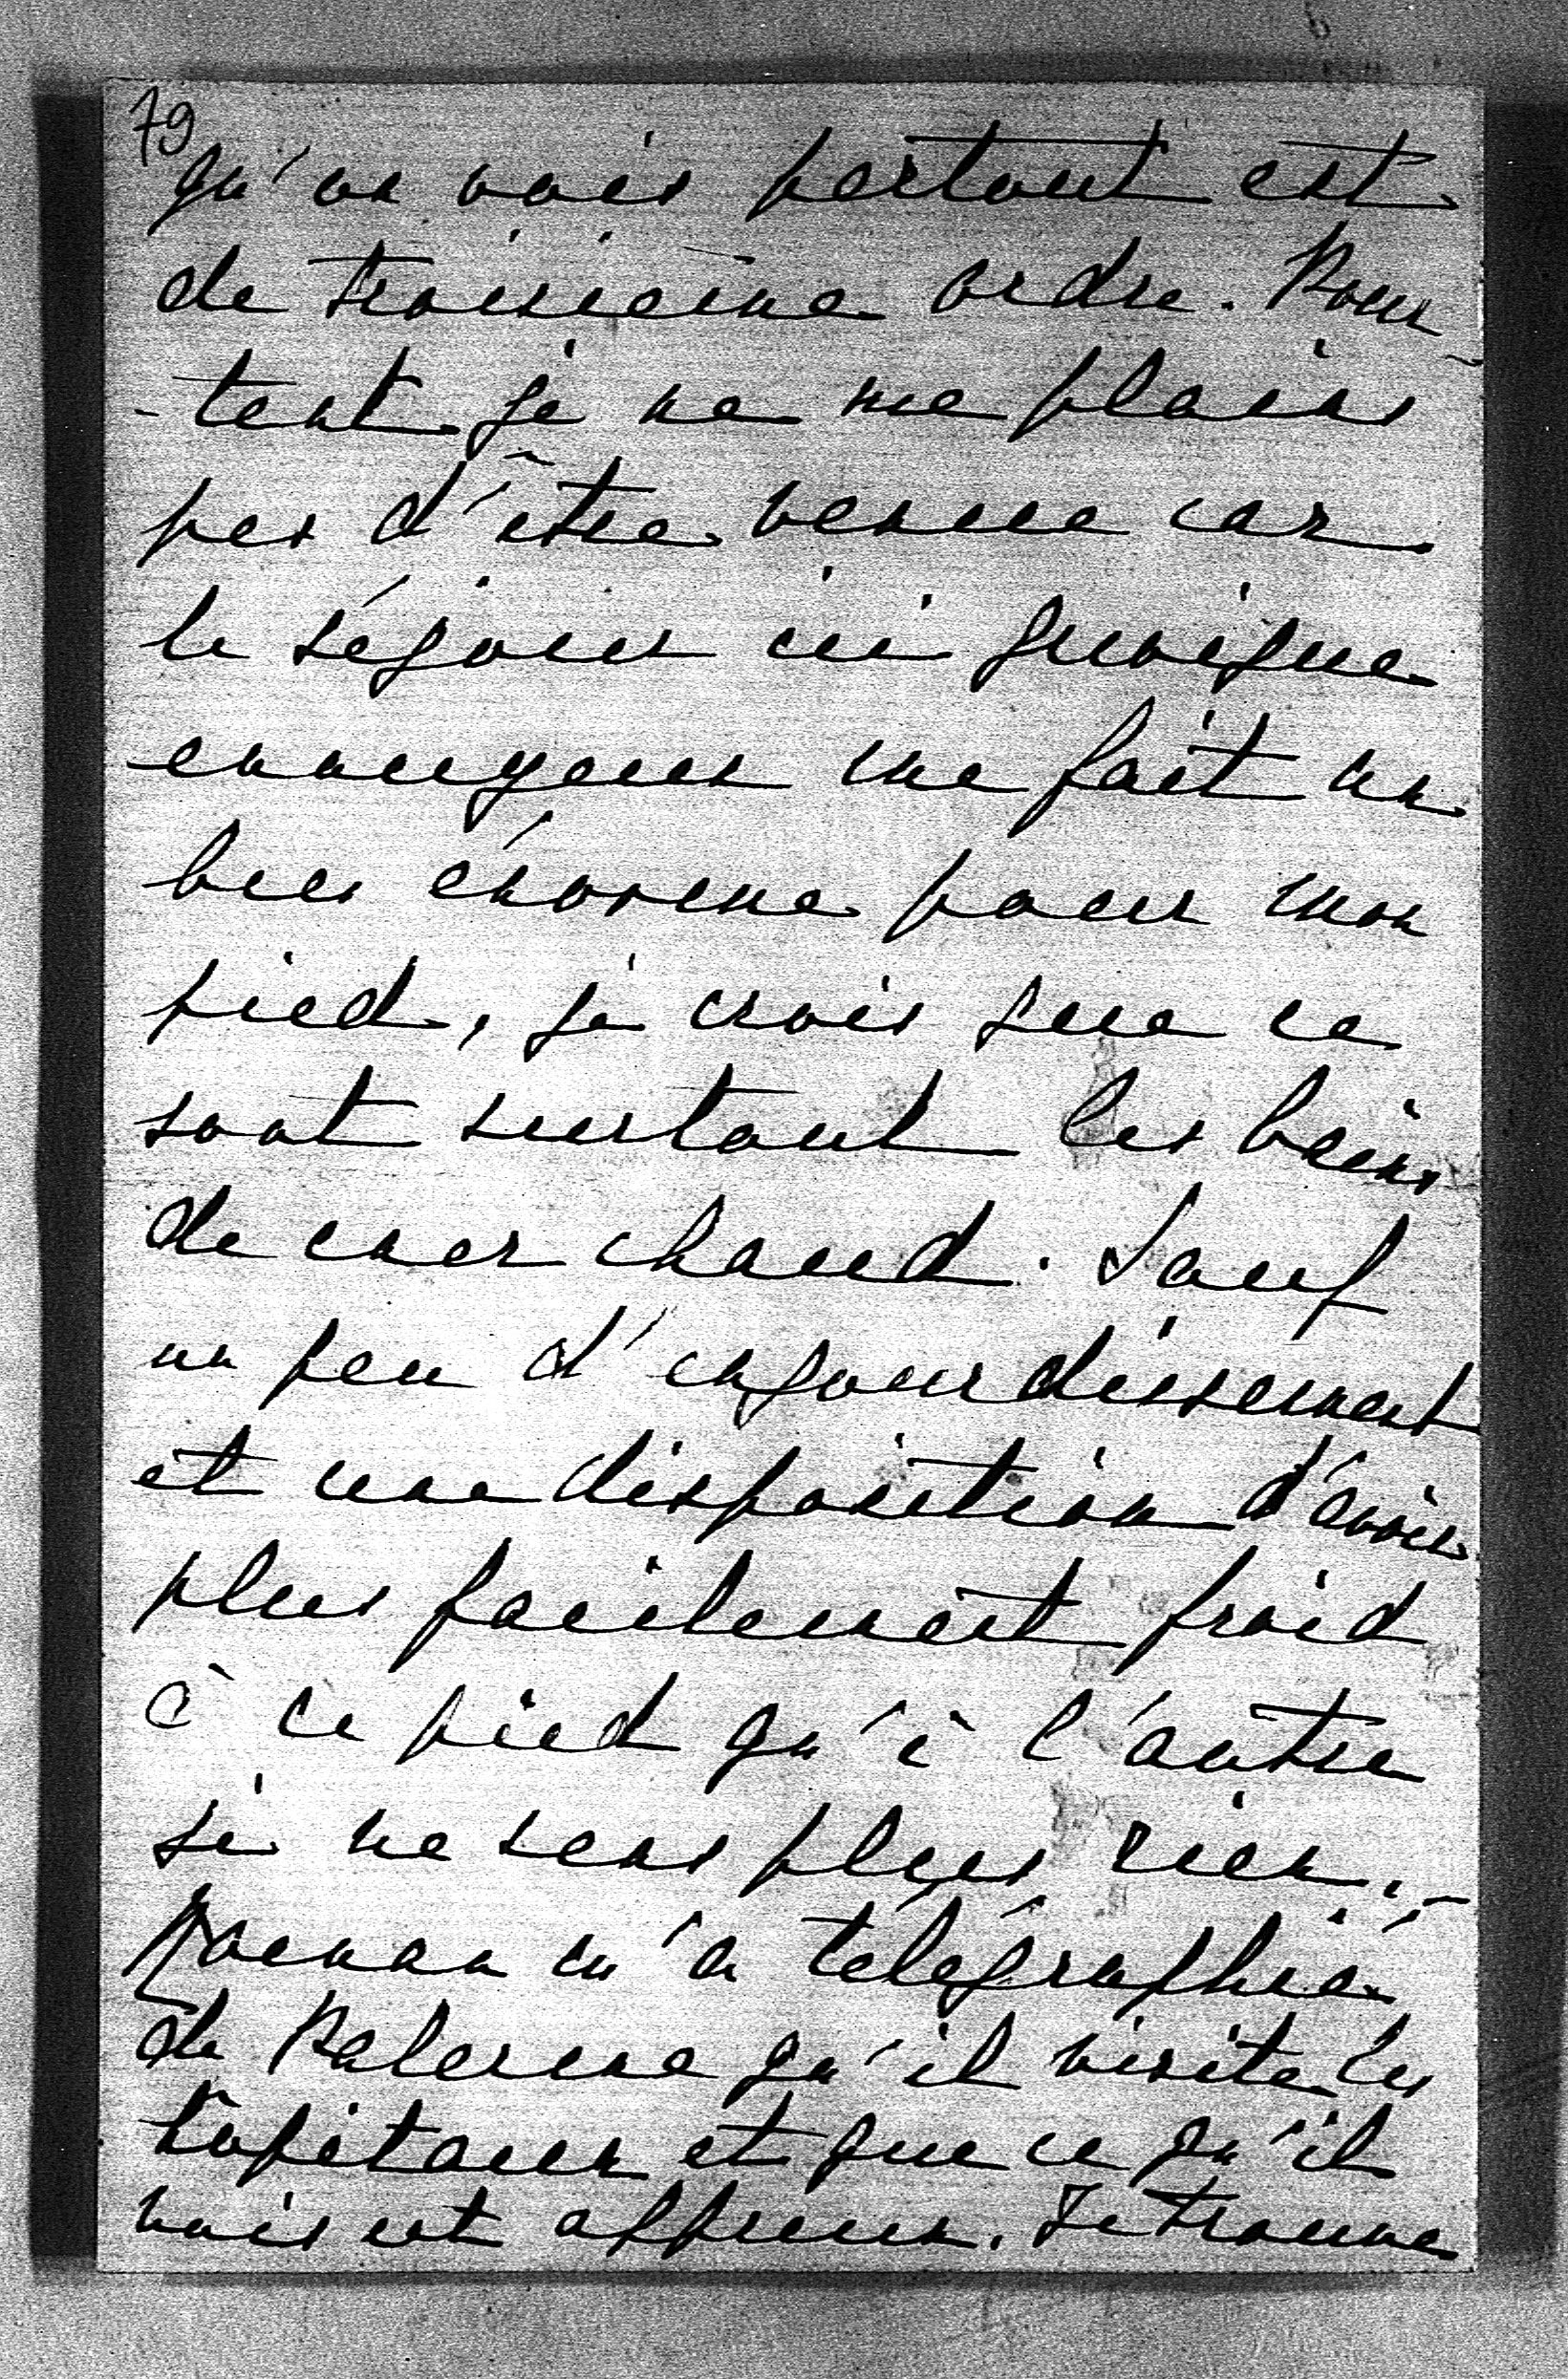 79
qu'on vois partout est
de troisième ordre. Pour-
-tant je ne me plains
pas d'être venue car
le séjour ici quoique
ennuyeux me fait un
bien énorme pour mon
pied, je crois que ce
sont surtout les bains
de mer chaud. Sauf
un peu d'enjourdissement
et une disposition d'avoir
plus facilement froid
à ce pied qu'à l'autre
je ne sens plus rien. –
m'a télégraphié
de Palerme qu'il visite les
hôpitaux et que ce qu'il
vois est affreux. Je trouve